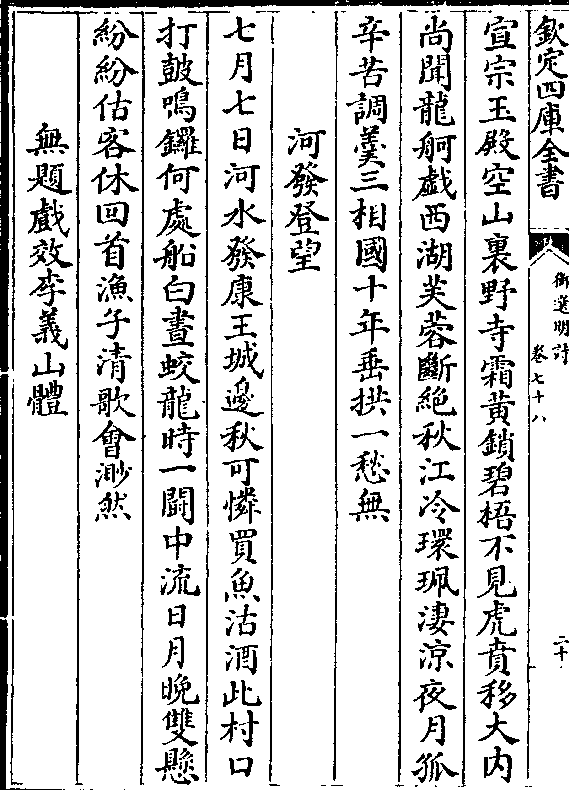 欽定四庫全書
御選明詩
卷七十八
二十
宣宗玉殿空山裏野寺霜黃鎖碧梧不見虎賁移大内
尚聞龍舸戲西湖芙蓉斷絶秋江冷環珮淒涼夜月孤
辛苦調羹三相國十年垂拱一愁無
河發登望
七月七日河水發康王城邊秋可憐買魚沽酒此村口
打皷鳴鑼何處船白晝蛟龍時一鬭中流日月晚雙懸
紛紛估客休回首漁子清歌會渺然
無題戲效李義山體